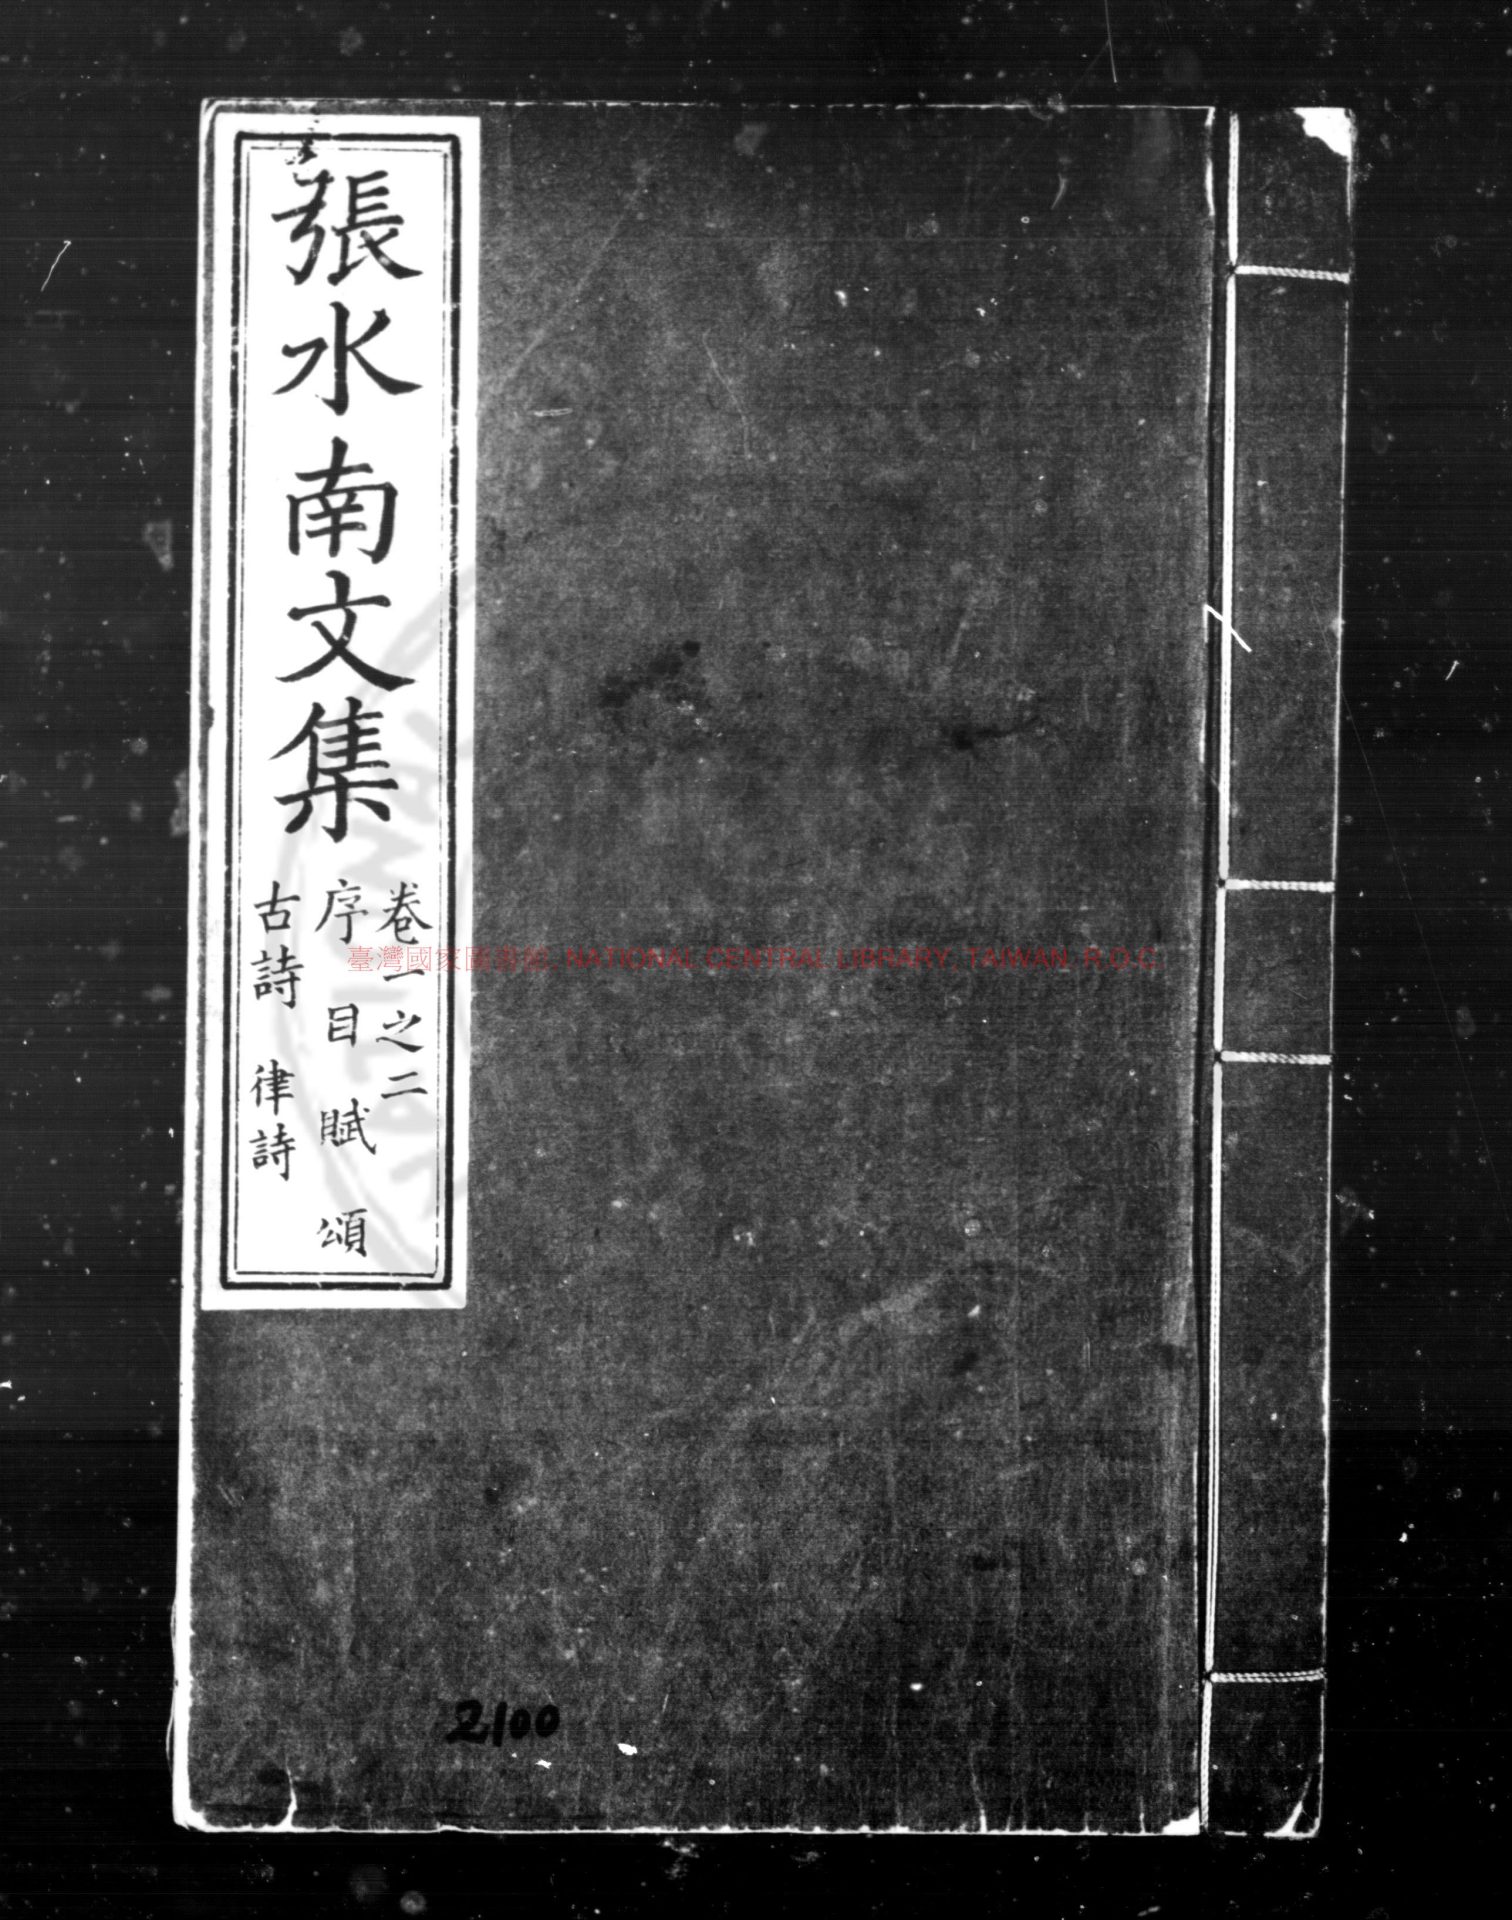 張水南文集
卷一之二
序目賦頌
古詩 律詩
臺灣國家圖書館, NATIONAL CENTRAL LIBRARY, TAIWAN, R.O.C.
2100